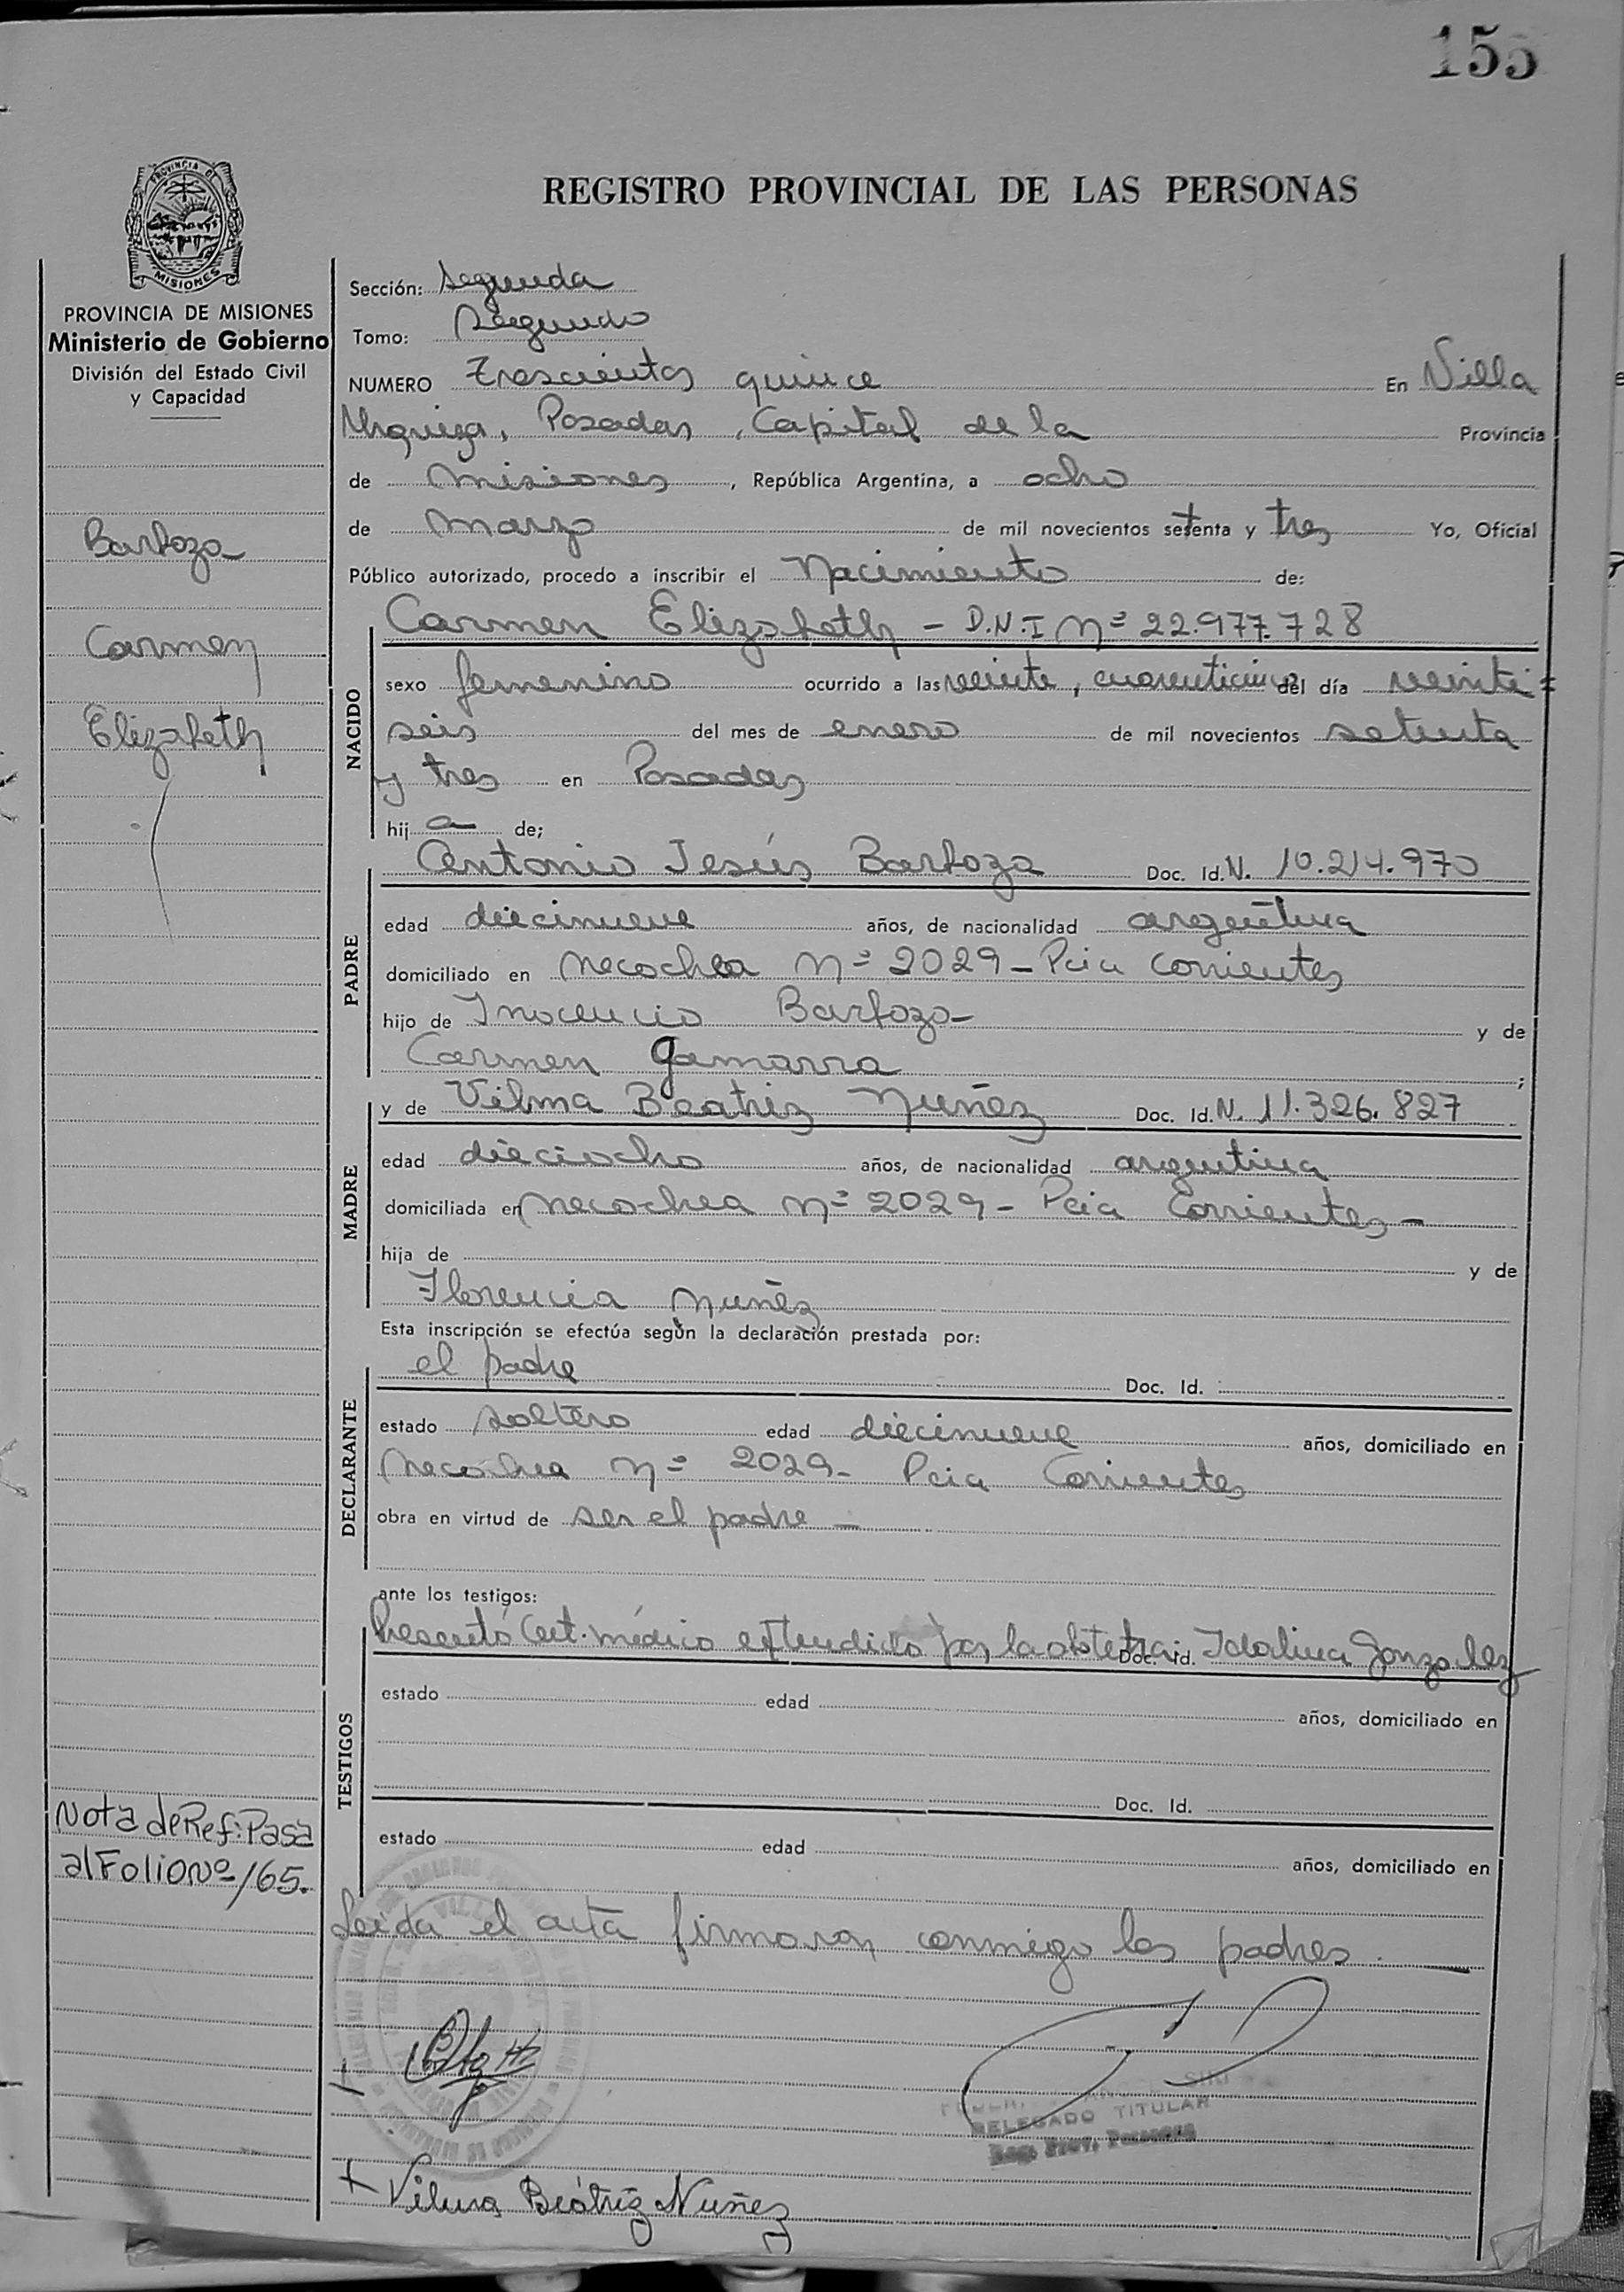 155
PROVINCIA DE
MISIONES
REGISTRO PROVINCIAL DE LAS PERSONAS
PROVINCIA DE MISIONES
Ministerio de Gobierno
División del Estado Civil
y Capacidad
Barboza
Carmen
Elizabeth
Nota de Ref: Pasa
al Folio Nº 165.
Sección: Segunda
Tomo: Segundo
NUMERO Trescientos quince En Villa
Urquiza, Posadas, Capital de la Provincia
de Misiones, República Argentina, a ocho
de Marzo de mil novecientos setenta y tres Yo, Oficial
Público autorizado, procedo a inscribir el Nacimiento de:
NACIDO
Carmen Elizabeth - D.N.I Nº 22.977.728
sexo femenino ocurrido a las veinte, cuarenticinco del día veinti=
seis del mes de enero de mil novecientos setenta
y tres en Posadas
hij a de;
PADRE
Antonio Jesús Barboza Doc. Id. N. 10.214.970
edad diecinueve años, de nacionalidad argentina
domiciliado en Necochea Nº 2029 - Pcia Corrientes
hijo de Inocencio Barboza - y de
Carmen Gamarra ;
MADRE
y de Vilma Beatriz Nuñez Doc. Id. N. 11.326.827
edad dieciocho años, de nacionalidad argentina
domiciliada en Necochea Nº 2029 - Pcia Corrientes -
hija de y de
Florencia Nuñez
Esta inscripción se efectúa según la declaración prestada por:
DECLARANTE
el padre Doc. Id.
estado soltero edad diecinueve años, domiciliado en
Necochea Nº 2029 - Pcia Corrientes
obra en virtud de ser el padre -
ante los testigos:
TESTIGOS
Presentó Cert. médico extendido por la obstetra Doc. Id. Idalina Gonzalez
estado edad años, domiciliado en
Doc. Id.
estado edad años, domiciliado en
Leida el acta firmaron conmigo los padres.
DELEGADO TITULAR
Reg. Prov. Personas
Vilma Beátriz Nuñez